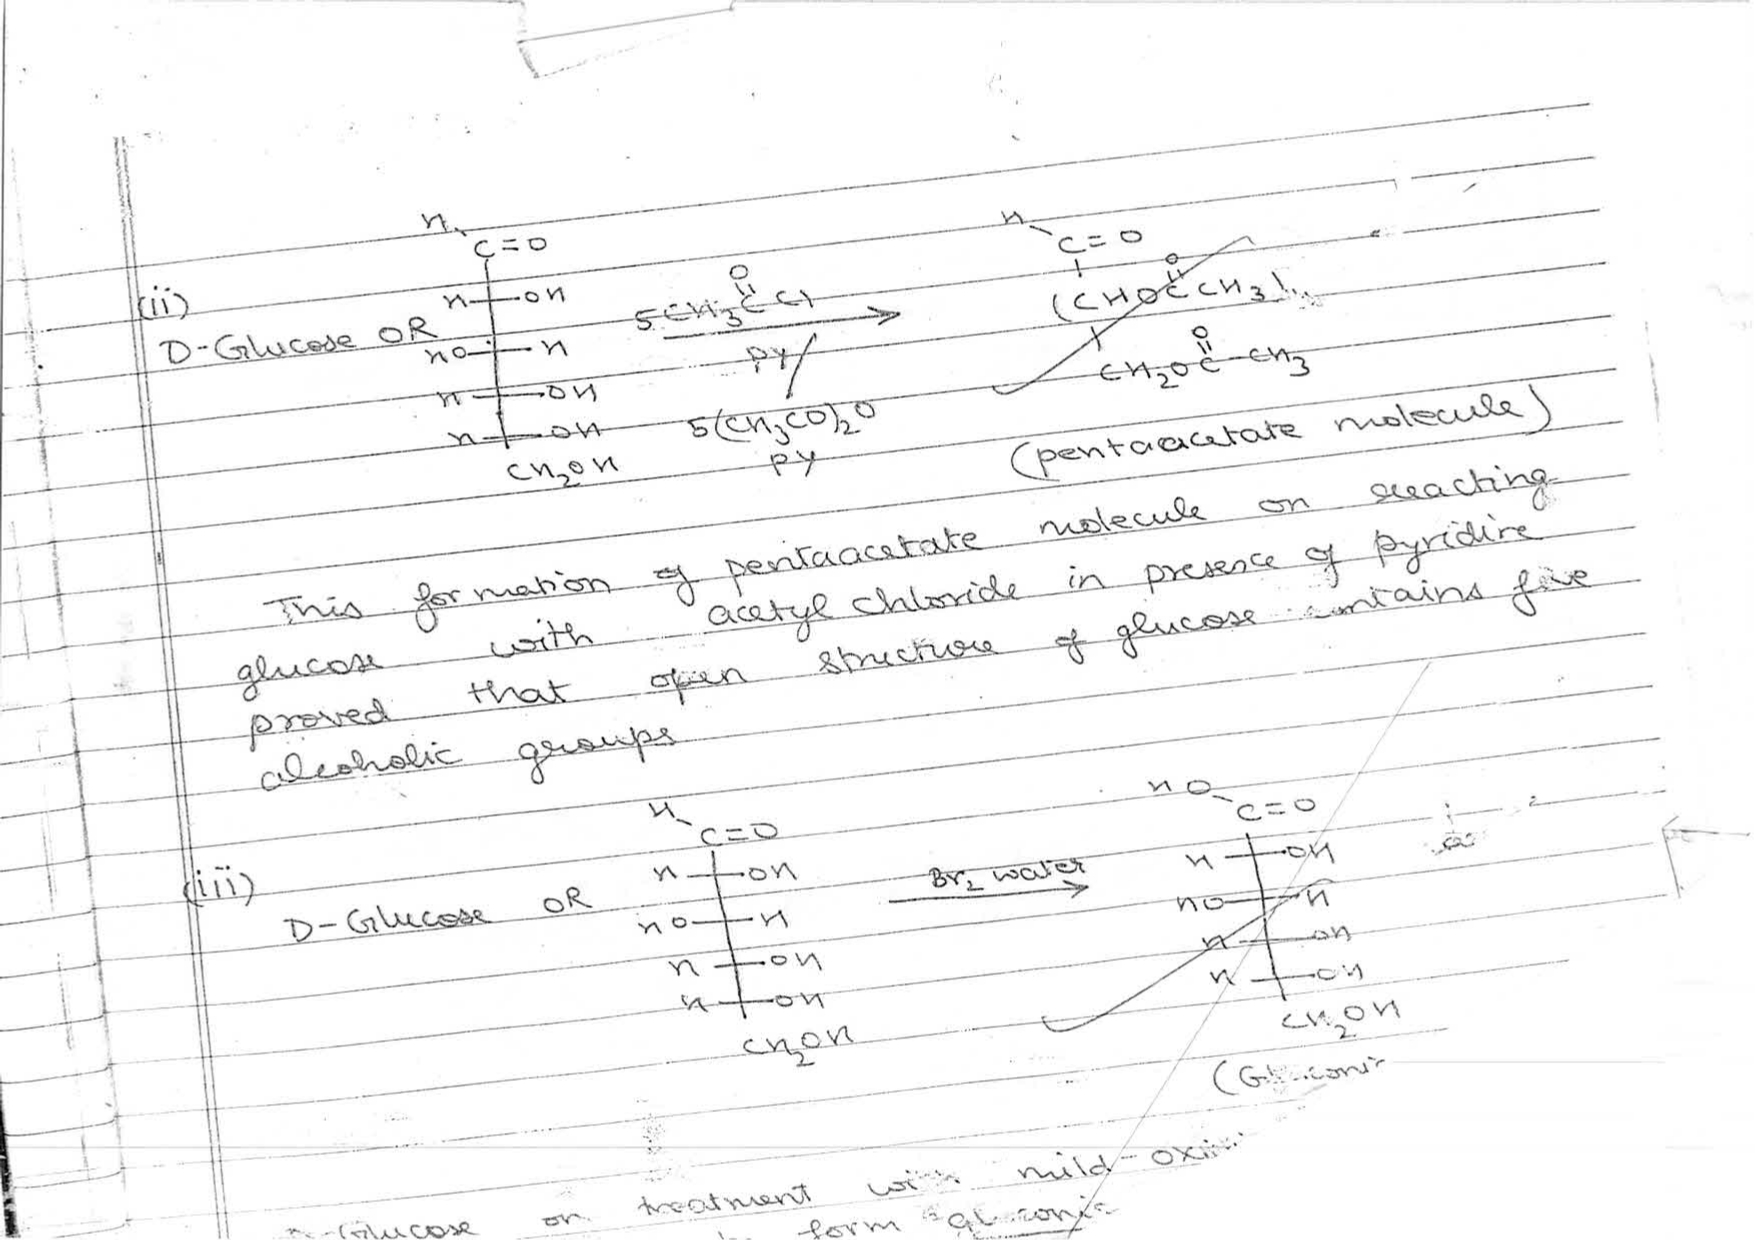 H
C=O
(ii)
H OH
D-Glucose OR
HO H
H OH
H OH
CH2OH
O
5CH3CCl
PY/
5(CH3CO)2O
PY
H
C=O
O
(CHOCCH3)
O
CH2OC-CH3
(pentaacetate molecule)
This formation of pentaacetate molecule on reacting
glucose with acetyl chloride in presence of pyridine
proved that open structure of glucose contains five
alcoholic groups
H
C=O
(iii)
H OH
D-Glucose OR
HO H
H OH
H OH
CH2OH
Br2 water
HO
C=O
H OH
HO H
H OH
H OH
CH2OH
Glucose on treatment with mild
form